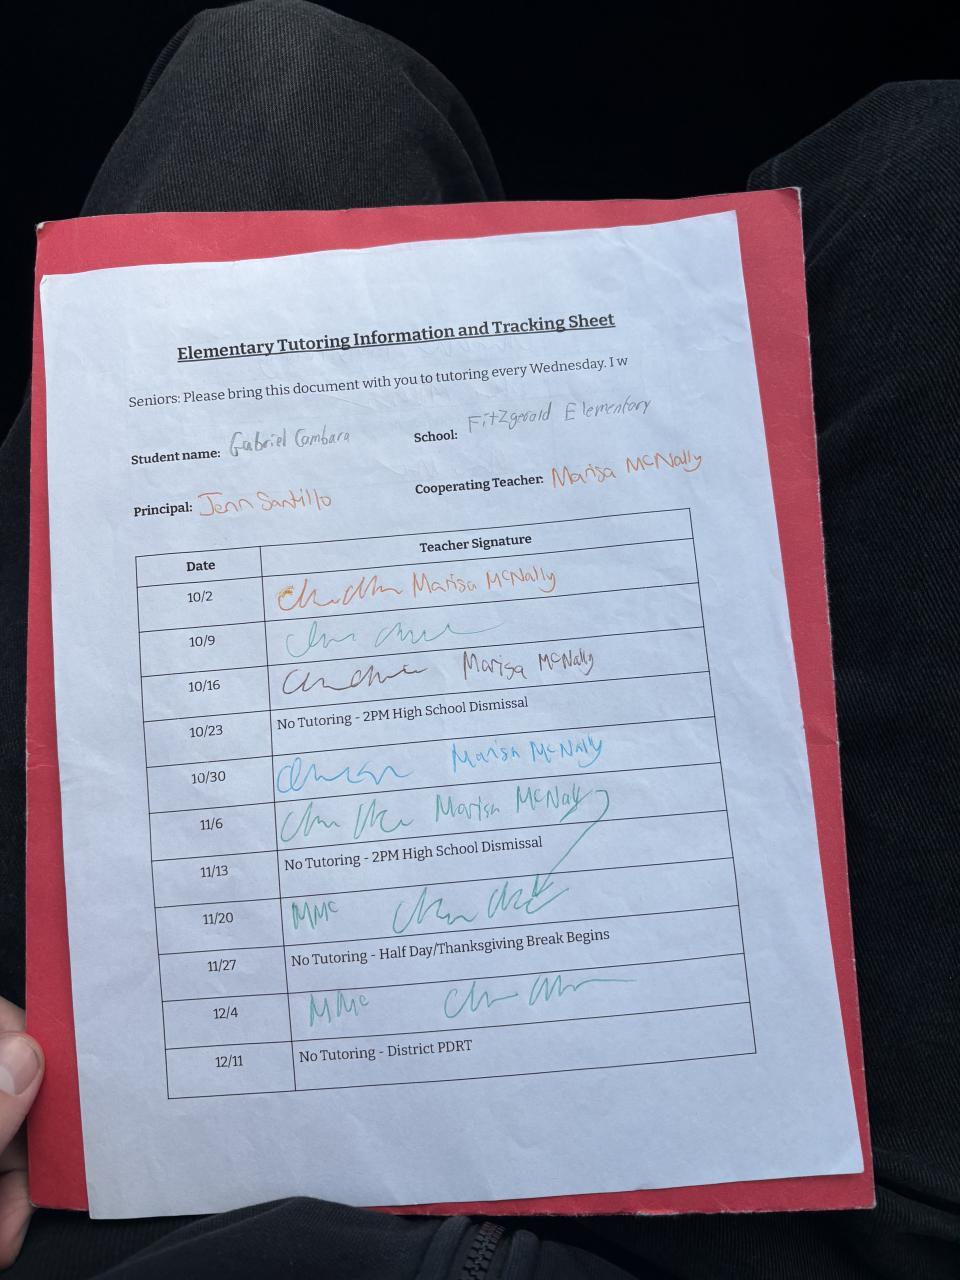 Elementary Tutoring Information and Tracking Sheet
Seniors: Please bring this document with you to tutoring every Wednesday. I w
Student name: Gabriel Cambara School: Fitzgerald Elementary
Principal: Jenn Santillo Cooperating Teacher: Marisa McNally
Date Teacher Signature
10/2 Marisa McNally
10/9
10/16 Marisa McNally
10/23 No Tutoring - 2PM High School Dismissal
10/30 Marisa McNally
11/6 Marisa McNally
11/13 No Tutoring - 2PM High School Dismissal
11/20 MMc
11/27 No Tutoring - Half Day/Thanksgiving Break Begins
12/4 MMc
12/11 No Tutoring - District PDRT